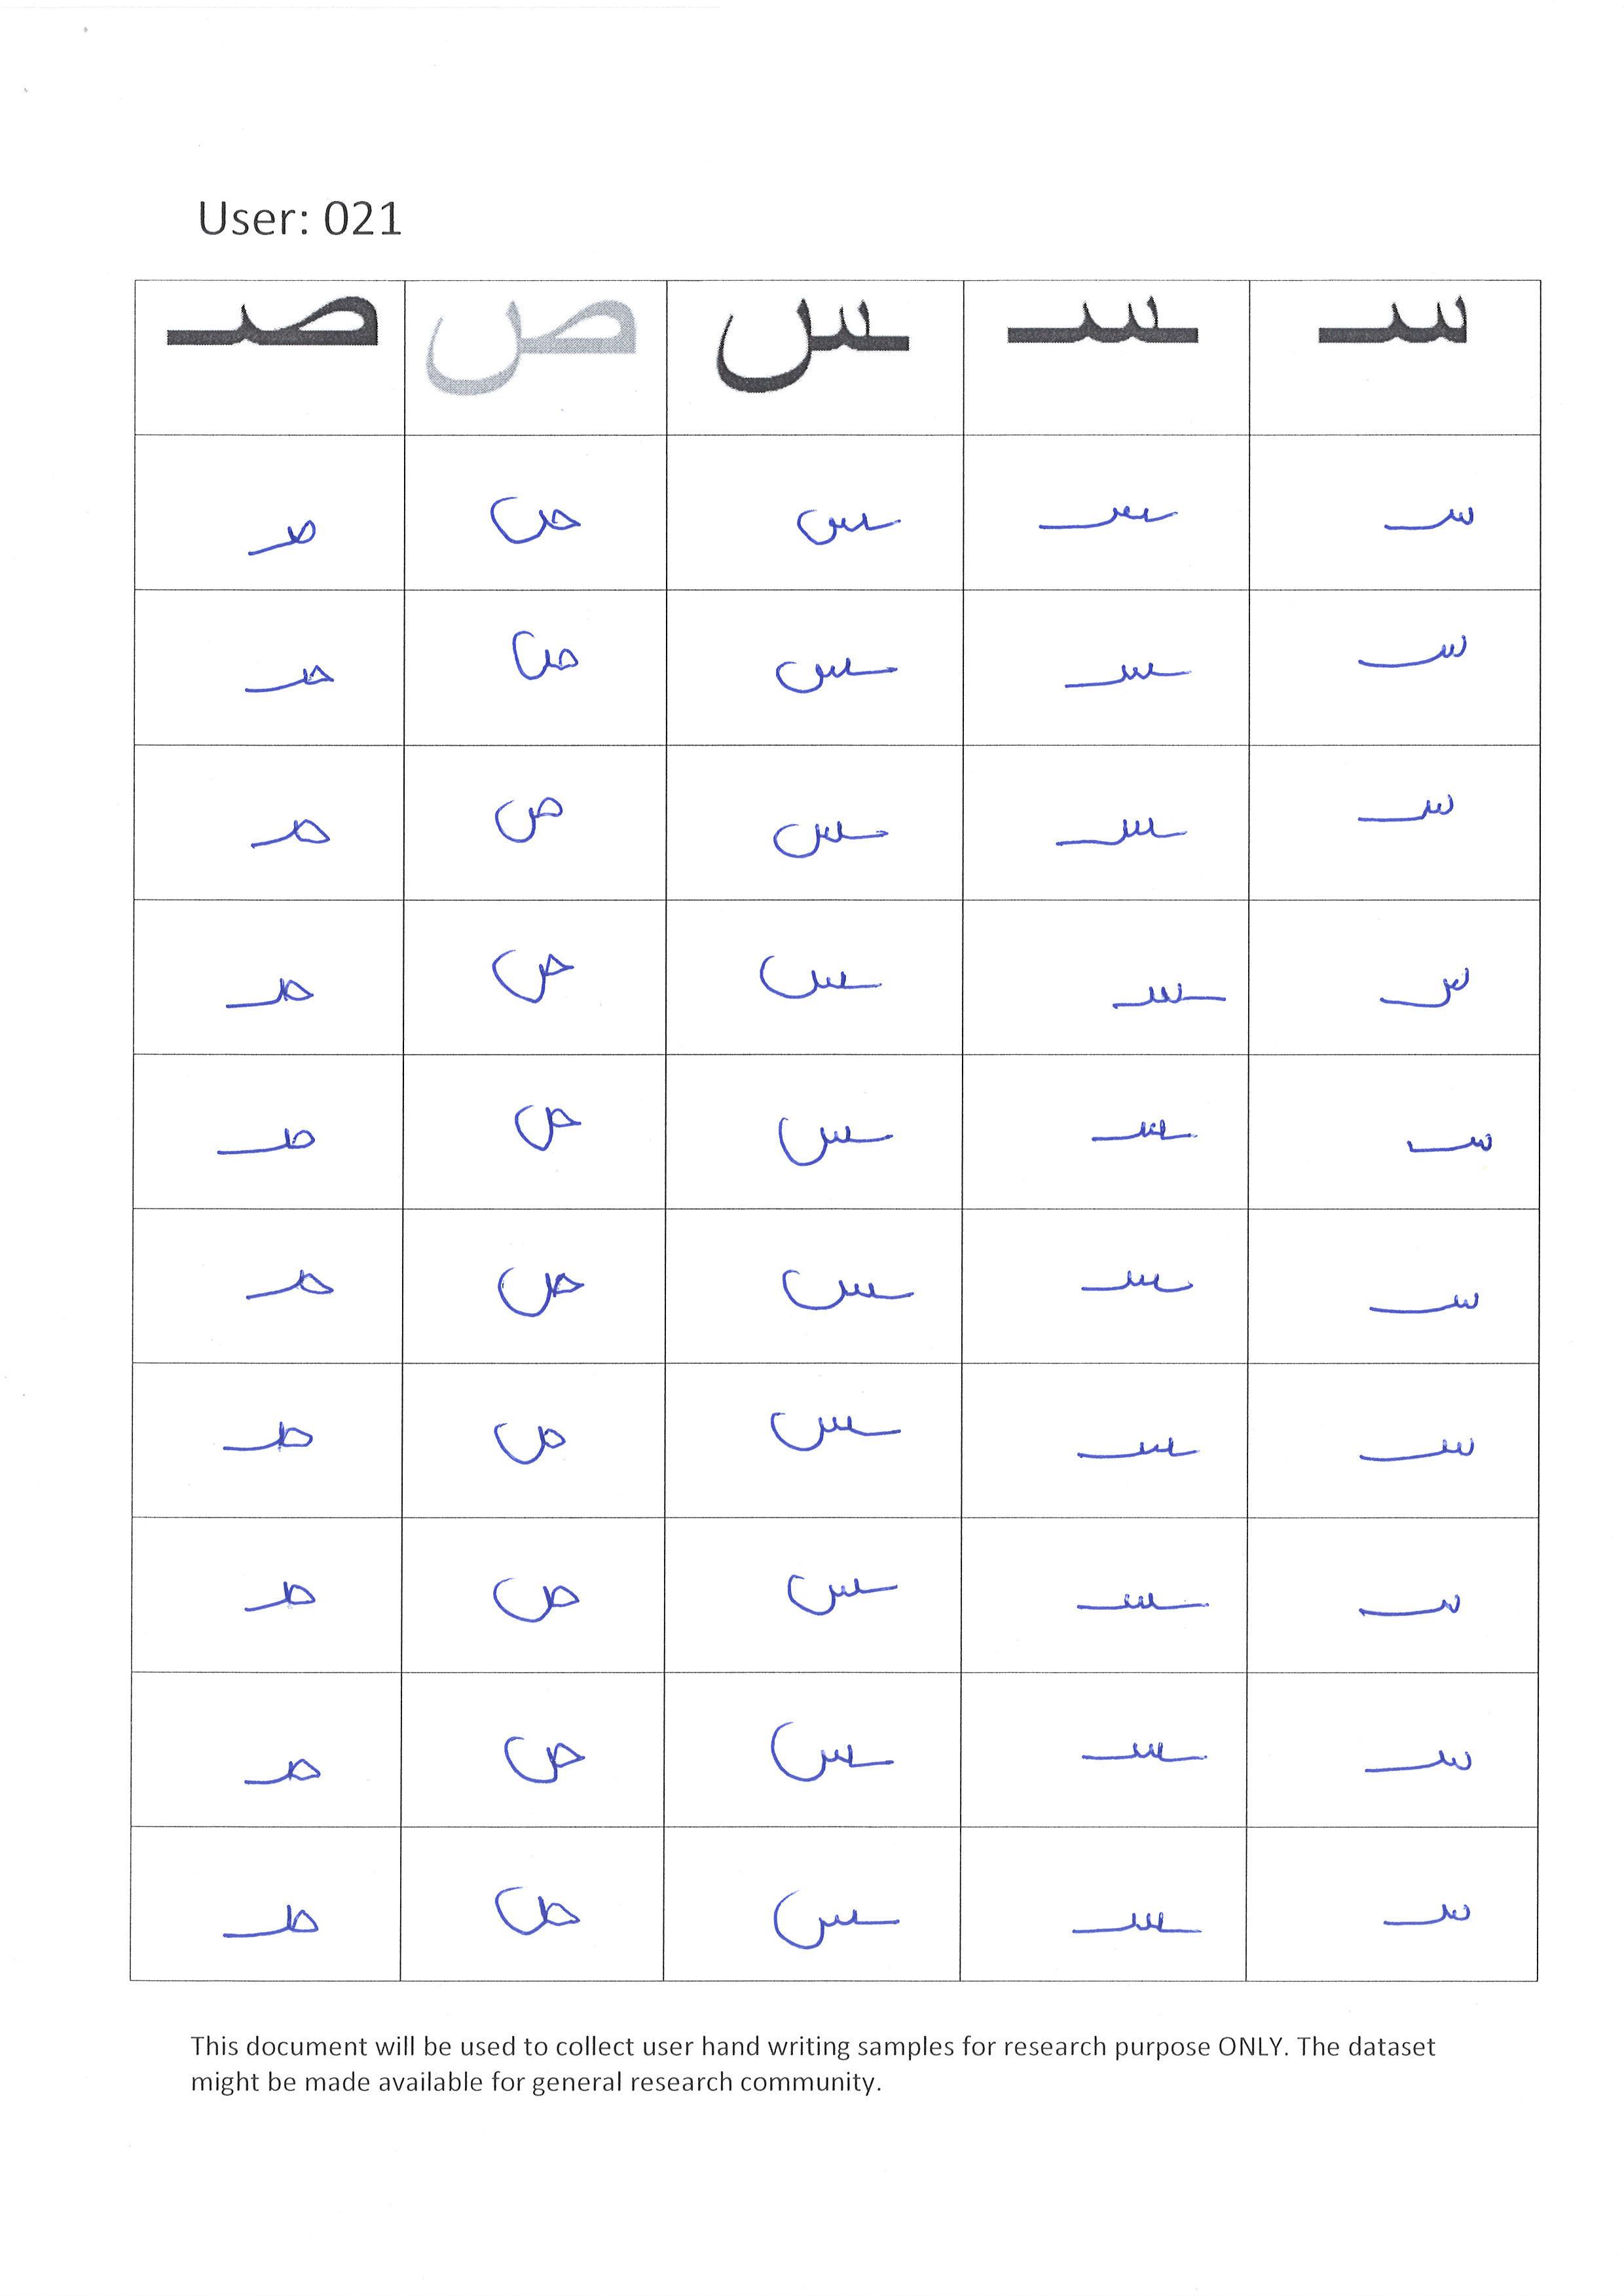 User: 021
سـ ـسـ ـس ص صـ
سـ ـسـ ـس ص صـ
سـ ـسـ ـس ص صـ
سـ ـسـ ـس ص صـ
سـ ـسـ ـس ص صـ
سـ ـسـ ـس ص صـ
سـ ـسـ ـس ص صـ
سـ ـسـ ـس ص صـ
سـ ـسـ ـس ص صـ
سـ ـسـ ـس ص صـ
سـ ـسـ ـس ص صـ
This document will be used to collect user hand writing samples for research purpose ONLY. The dataset
might be made available for general research community.